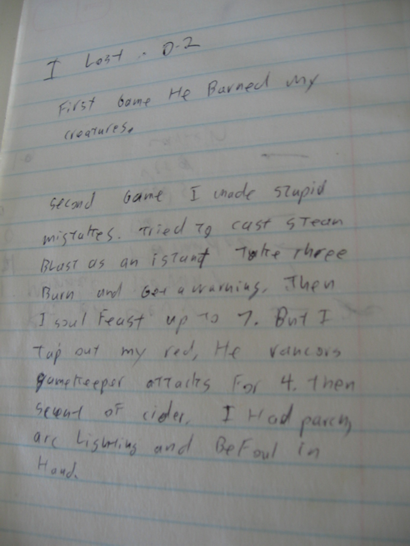 I Lost . 0-2
First Game He Burned my
creatures.
Second Game I made stupid
mistakes. Tried to cast steam
Blast as an istant Take three
Burn and Get a warning. Then
I soul Feast up to 7. But I
tap out my red, He rancors
gamekeeper attacks For 4. then
Scent of cider. I Had parch,
arc Lightning and BeFoul in
Hand.